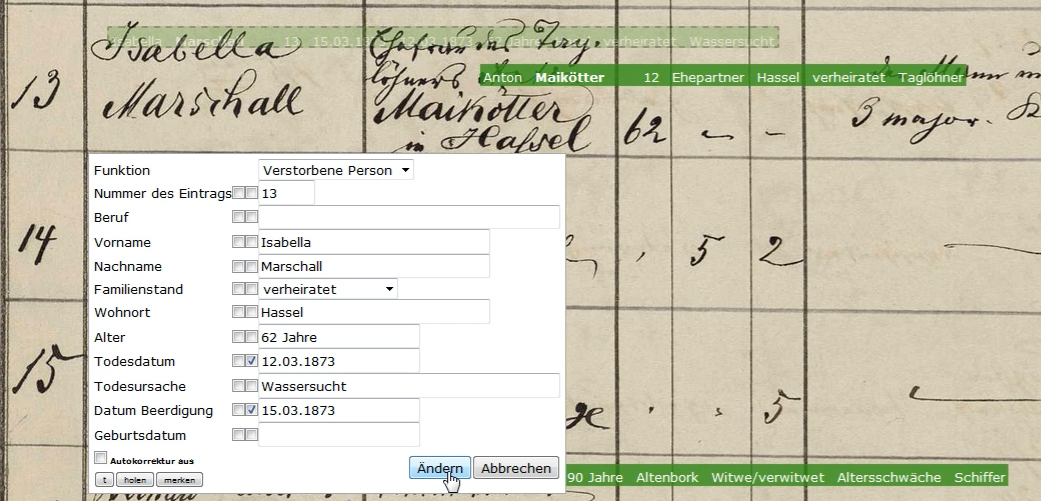 Isabella Marschall 13 15.03.1 62 Jahre verheiratet Wassersucht
Isabella
Ehefrau des Tag-
löhners
Anton Maikötter 12 Ehepartner Hassel verheiratet Taglöhner
13
Marschall
Maikötter
in Hassel
62
3 major.
Funktion Verstorbene Person
Nummer des Eintrags 13
Beruf
Vorname Isabella
Nachname Marschall
Familienstand verheiratet
Wohnort Hassel
Alter 62 Jahre
Todesdatum 12.03.1873
Todesursache Wassersucht
Datum Beerdigung 15.03.1873
Geburtsdatum
Autokorrektur aus
t holen merken
Ändern Abbrechen
14
5 2
15
5
90 Jahre Altenbork Witwe/verwitwet Altersschwäche Schiffer